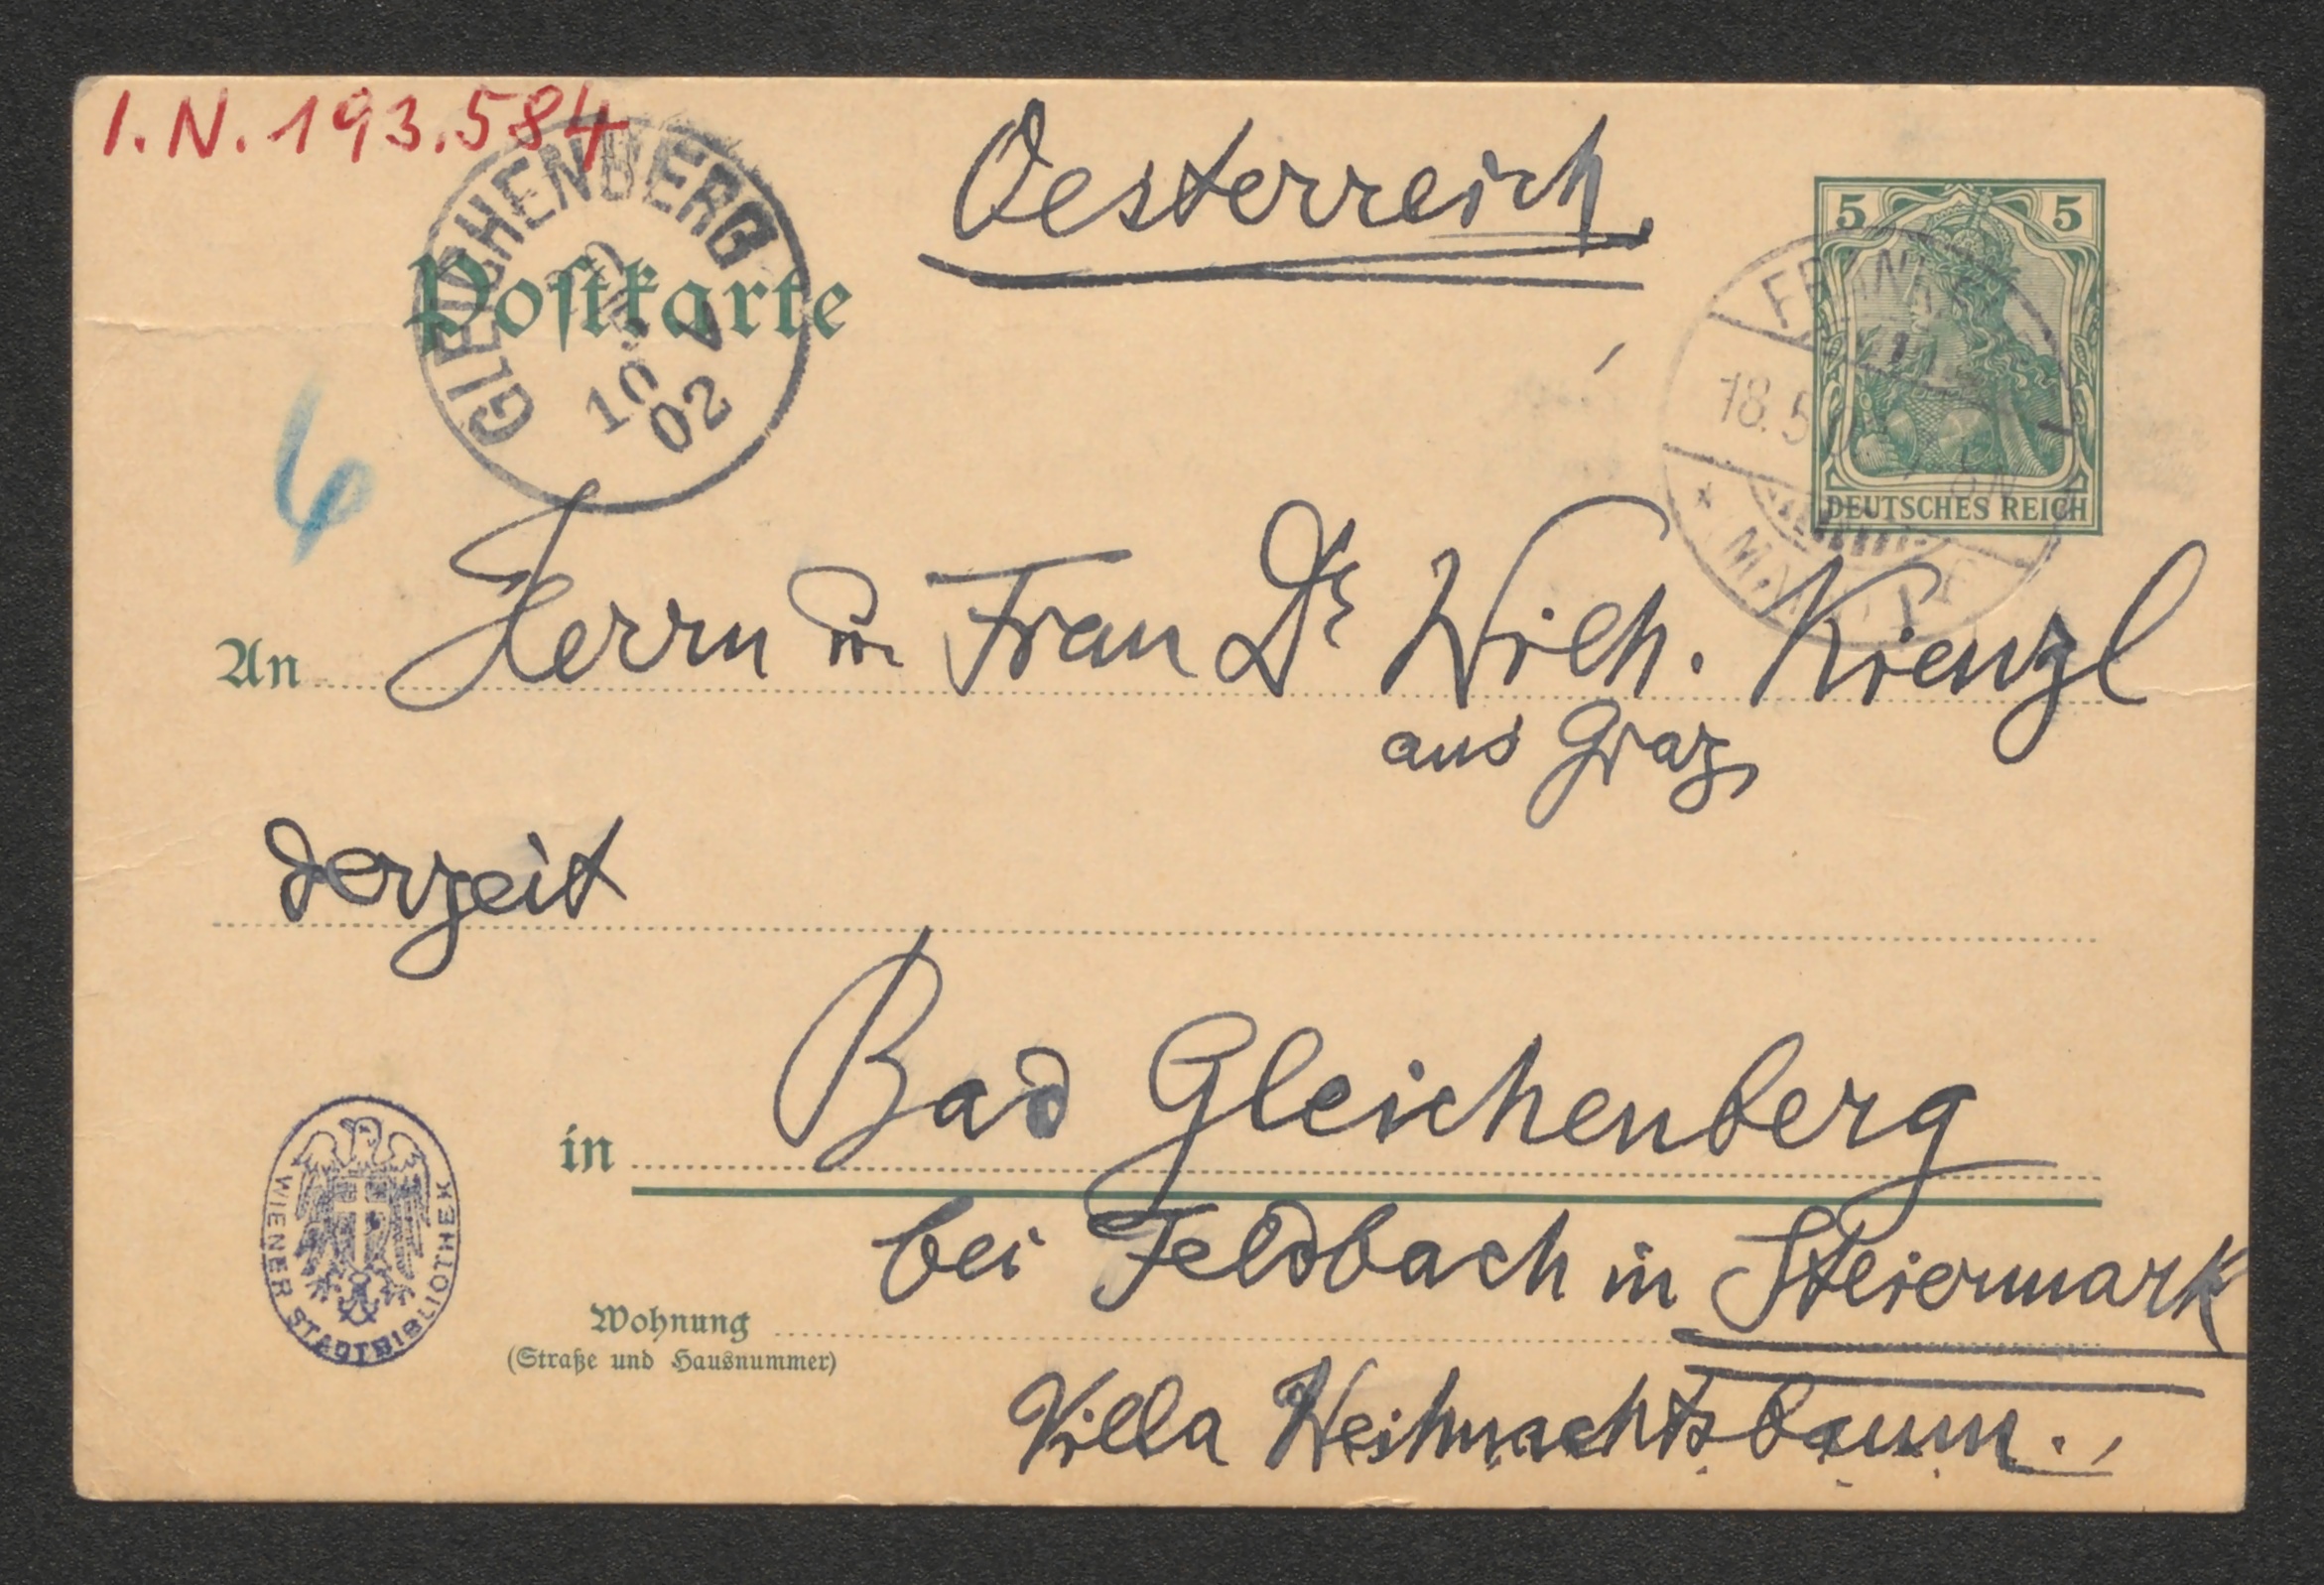 I.N. 193.584
Oesterreich.
GLEICHENBERG
10
V
02
Postkarte
5 5
DEUTSCHES REICH
18.5
6
An Herrn u. Frau Dr Wilh. Kienzl
aus Graz,
derzeit
in Bad Gleichenberg
bei Feldbach in Steiermark
Wohnung
(Straße und Hausnummer)
Villa Weihnachtsbaum.
WIENER STADTBIBLIOTHEK